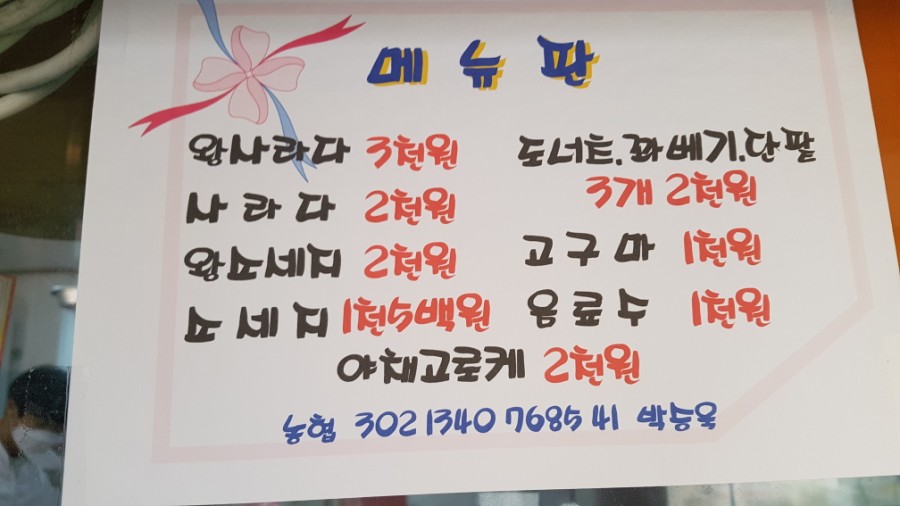 메뉴판
왕사라다 3천원
사라다 2천원
왕쇼세지 2천원
쇼세지 1천5백원
도너츠.꽈베기.단팥
3개 2천원
고구마 1천원
음료수 1천원
야채고로케 2천원
농협 302 1340 7685 41 박승욱